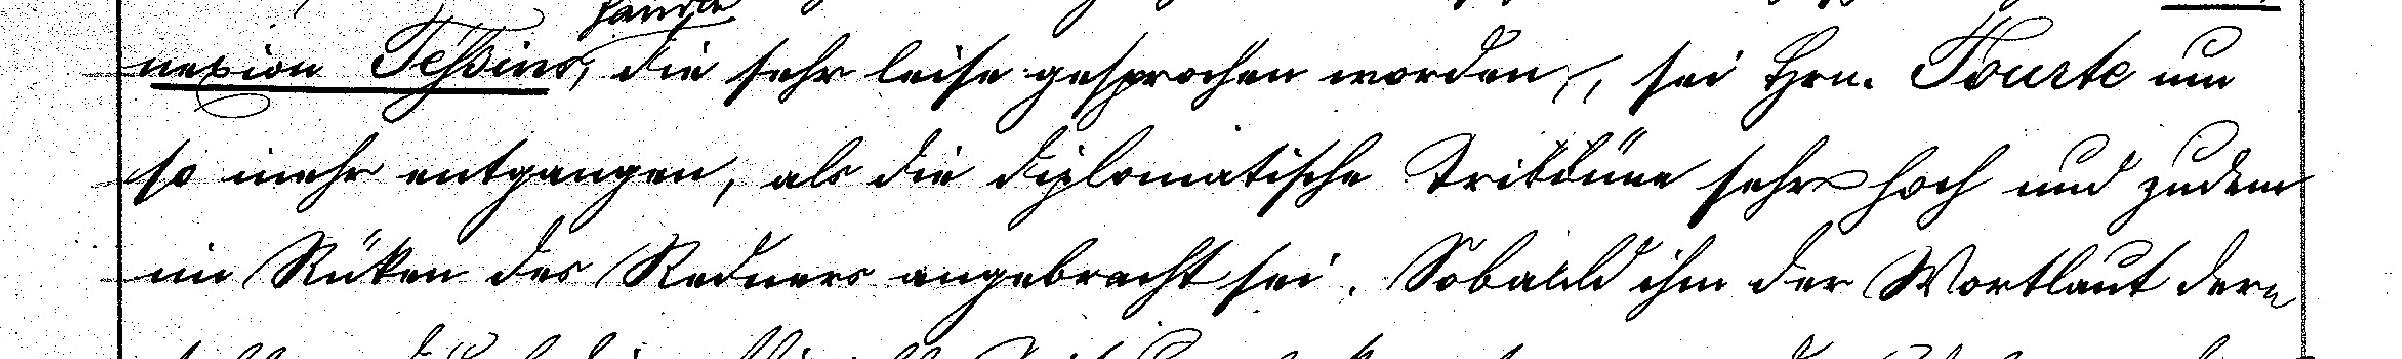 nexion Tessins, die sehr leise gesprochen worden, sei Hrn. Tourte um
so mehr entgangen, als die diplomatische Tribüne sehr hoch und zudem
im Rüken des Redners angebracht sei. Sobald ihm der Wortlaut der